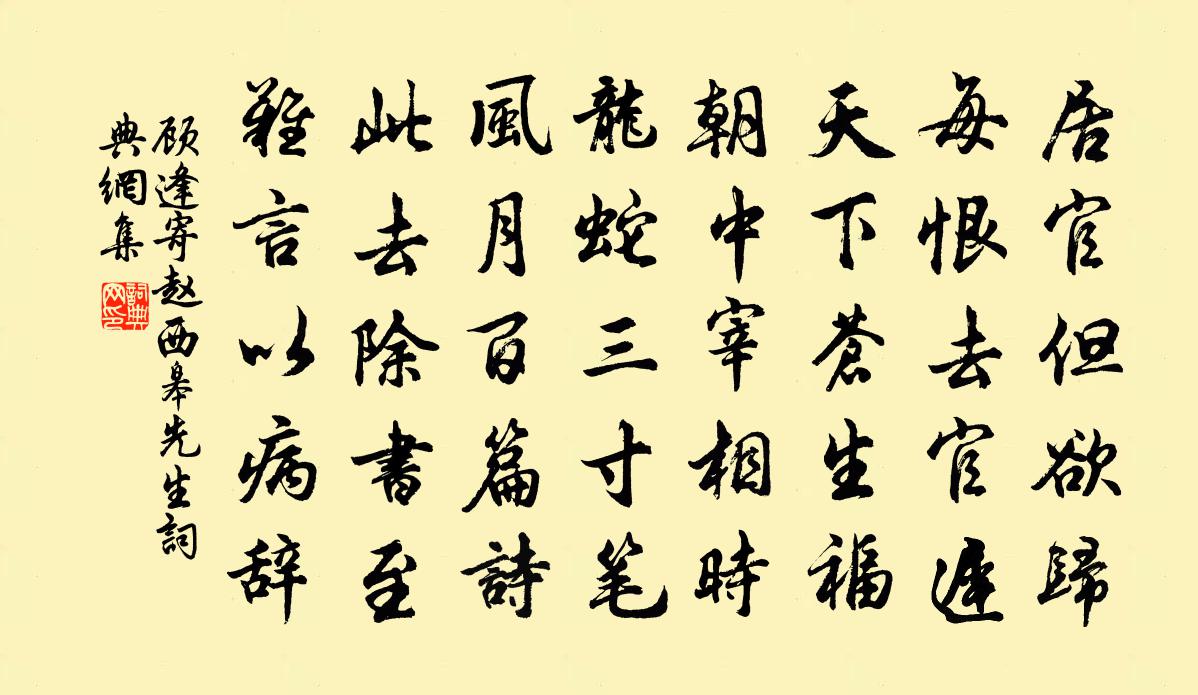 居官但欲歸
每恨去官遲
天下蒼生福
朝中宰相時
龍蛇三寸笔
風月百篇詩
此去除書至
難言以病辞
顾逢寄赵西皋先生詞
典網集
詞典
网印